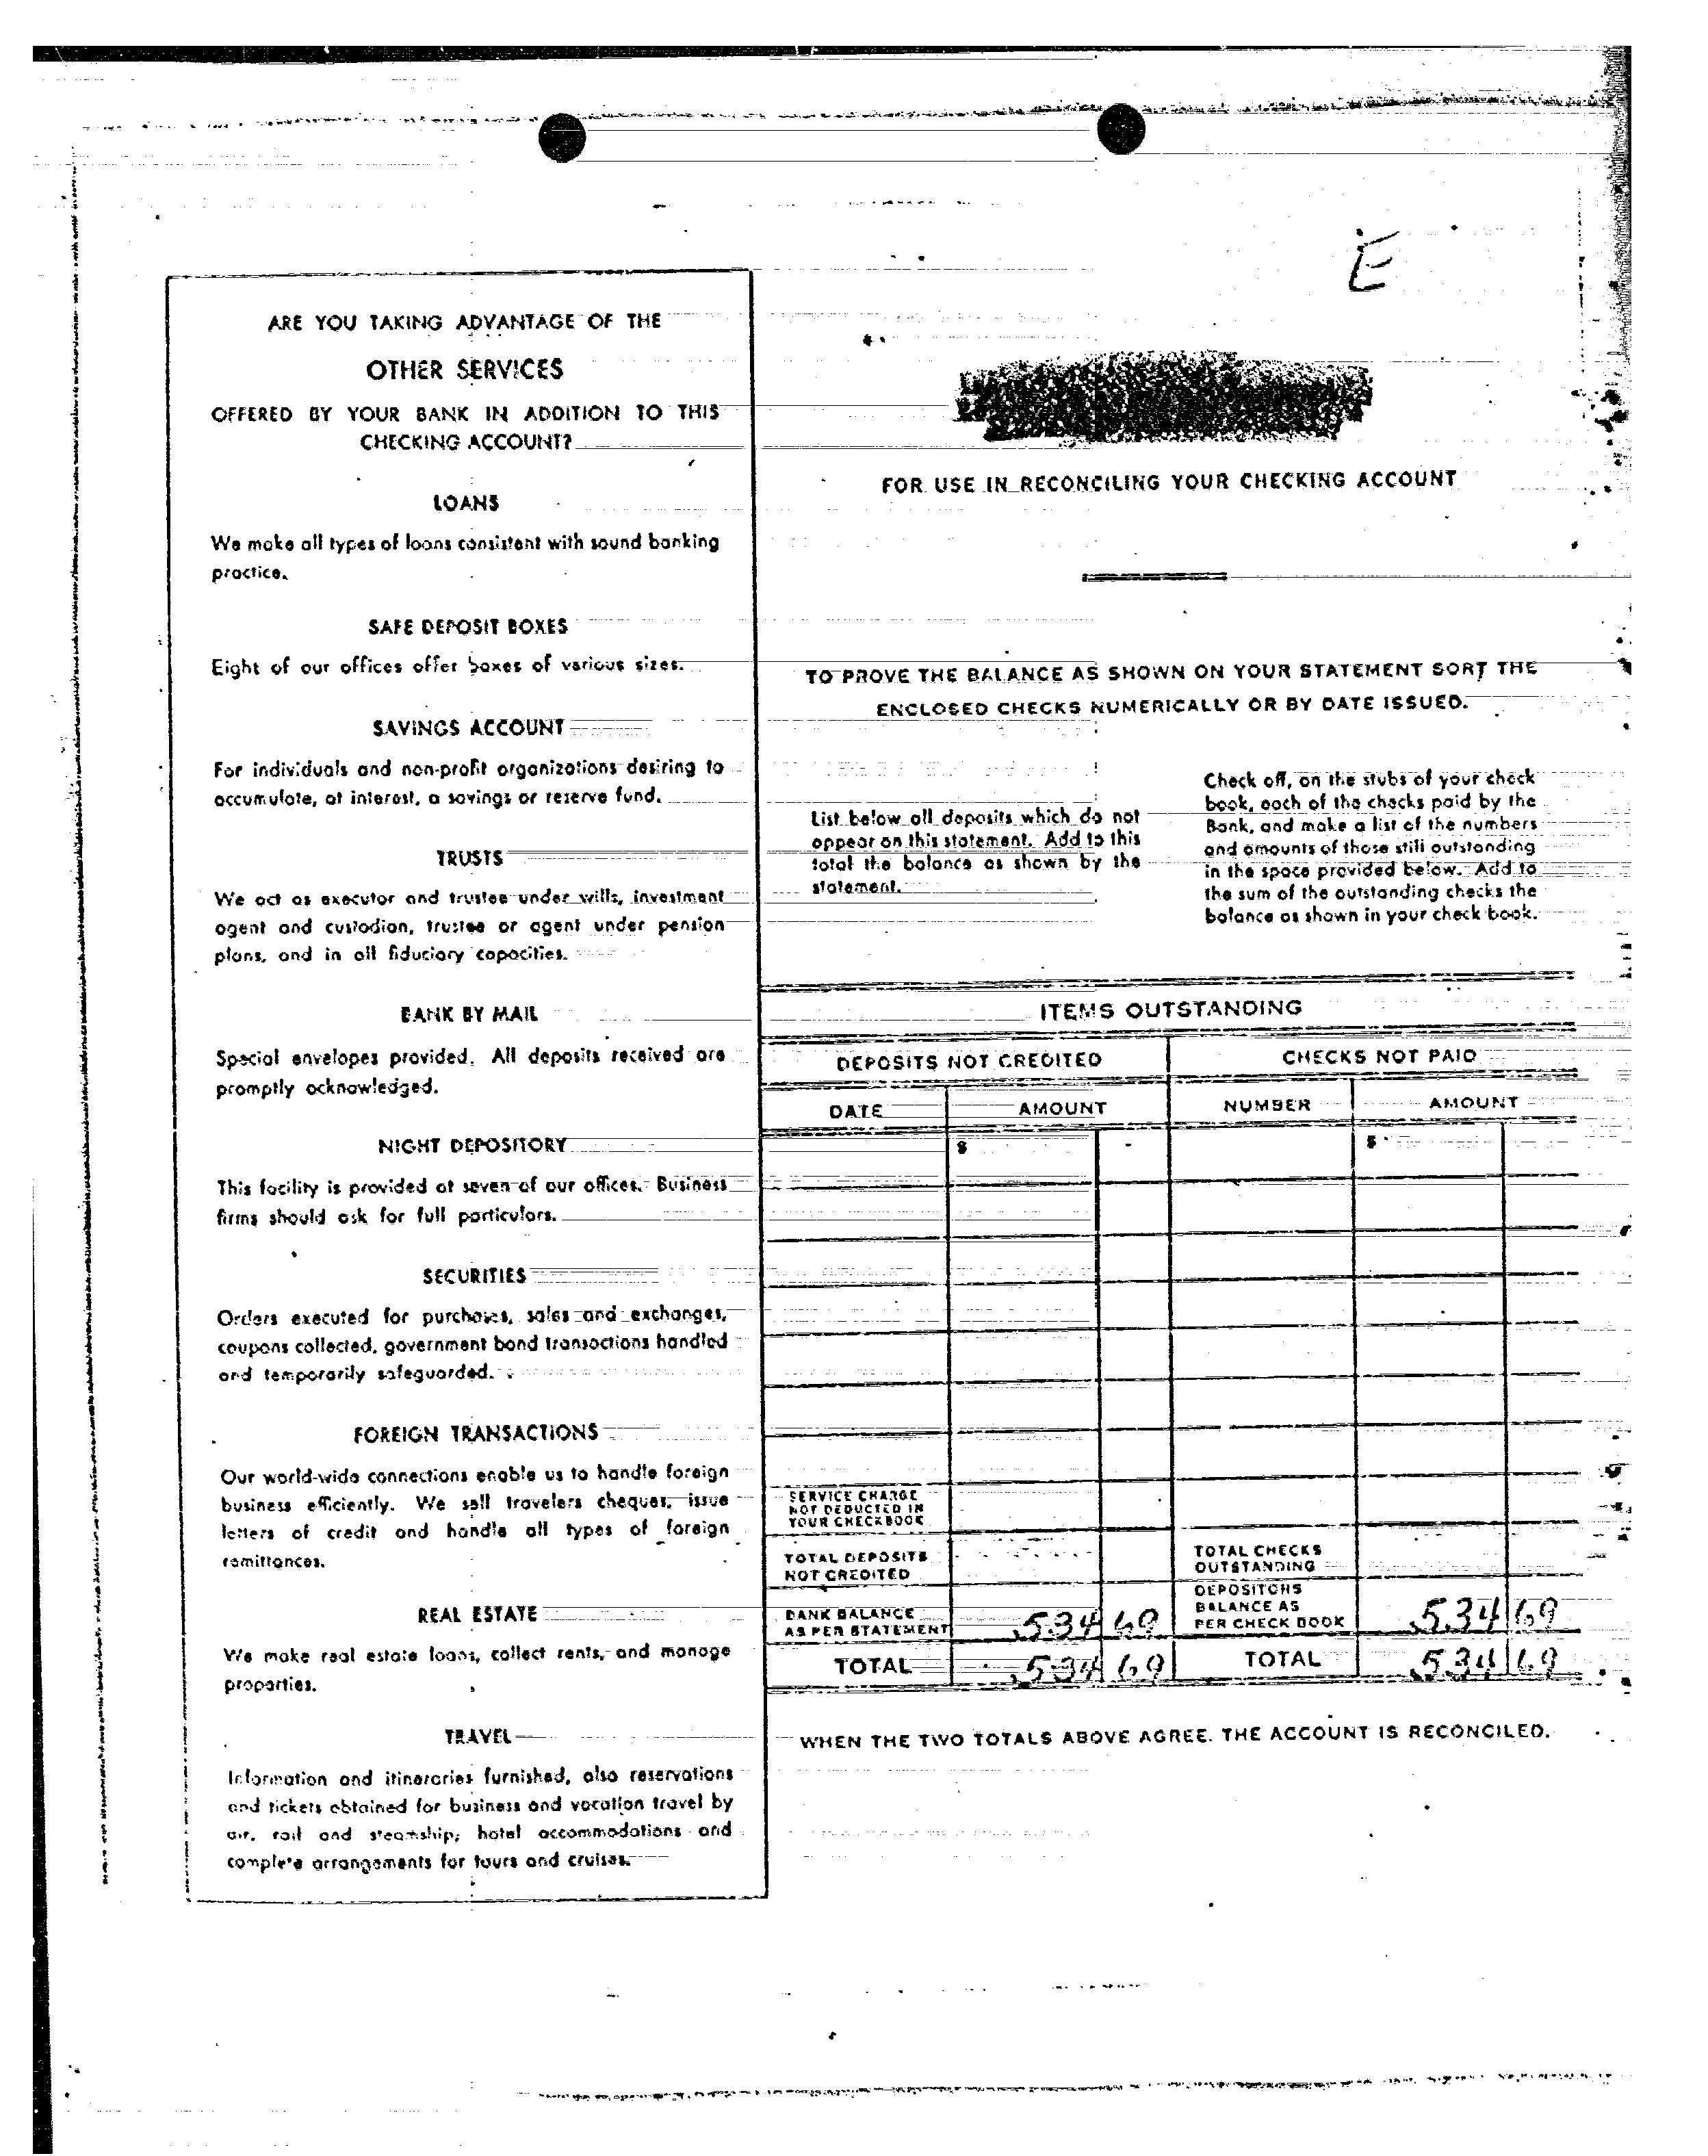 E
ARE YOU TAKING ADVANTAGE OF THE
OTHER SERVICES
OFFERED BY YOUR BANK IN ADDITION TO THIS
CHECKING ACCOUNT?
LOANS
We make all types of loans consistent with sound banking
practice.
SAFE DEPOSIT BOXES
Eight of our offices offer boxes of various sizes.
SAVINGS ACCOUNT
For individuals and non-profit organizations desiring to
accumulate, at interest, a savings or reserve fund.
TRUSTS
We act as executor and trustee under wills, investment
agent and custodian, trustee or agent under pension
plans, and in all fiduciary capacities.
BANK BY MAIL
Special envelopes provided. All deposits received are
promptly acknowledged.
NIGHT DEPOSITORY
This facility is provided at seven of our offices. Business
firms should ask for full particulars.
SECURITIES
Orders executed for purchases, sales and exchanges,
coupons collected, government bond transactions handled
and temporarily safeguarded.
FOREIGN TRANSACTIONS
Our world-wide connections enable us to handle foreign
business efficiently. We sell travelers cheques, issue
letters of credit and handle all types of foreign
remittances.
REAL ESTATE
We make real estate loans, collect rents, and manage
properties.
TRAVEL
Information and itineraries furnished, also reservations
and tickets obtained for business and vacation travel by
air, rail and steamship; hotel accommodations and
complete arrangements for tours and cruises.
FOR USE IN RECONCILING YOUR CHECKING ACCOUNT
TO PROVE THE BALANCE AS SHOWN ON YOUR STATEMENT SORT THE
ENCLOSED CHECKS NUMERICALLY OR BY DATE ISSUED.
List below all deposits which do not
appear on this statement. Add to this
total the balance as shown by the
statement.
Check off, on the stubs of your check
book, each of the checks paid by the
Bank, and make a list of the numbers
and amounts of those still outstanding
in the space provided below. Add to
the sum of the outstanding checks the
balance as shown in your check book.
ITEMS OUTSTANDING
DEPOSITS NOT CREDITED CHECKS NOT PAID
DATE AMOUNT NUMBER AMOUNT
$ $
SERVICE CHARGE
NOT DEDUCTED IN
YOUR CHECKBOOK
TOTAL DEPOSITS
NOT CREDITED
TOTAL CHECKS
OUTSTANDING
BANK BALANCE
AS PER STATEMENT 534 69
DEPOSITORS
BALANCE AS
PER CHECK BOOK 534 69
TOTAL 534 69 TOTAL 534 69
WHEN THE TWO TOTALS ABOVE AGREE. THE ACCOUNT IS RECONCILED.